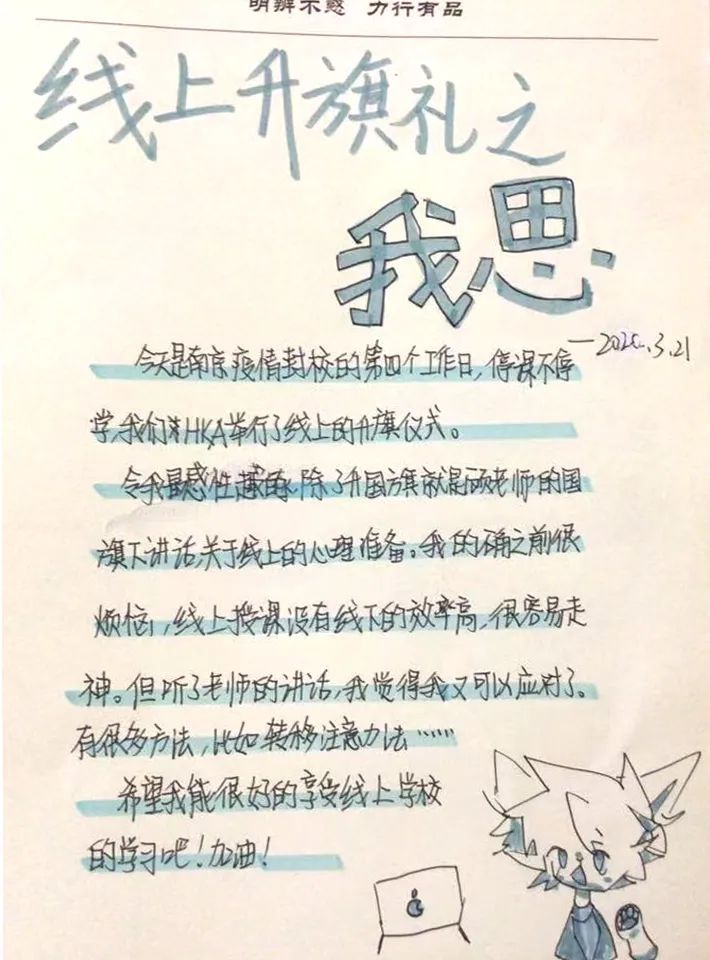 明辨不惑 力行有品
线上升旗礼之
我思
—2022.3.21
今天是南京疫情封校的第四个工作日，停课不停
学，我们对HKA举行了线上的升旗仪式。
令我最感性趣的，除了升国旗就是顾老师的国
旗下讲话，关于线上的心理准备。我的确之前很
烦恼，线上授课没有线下的效率高，很容易走
神。但听了老师的讲话，我觉得我又可以应对了。
有很多方法，比如转移注意力法……
希望我能很好的享受线上学校
的学习吧！加油！